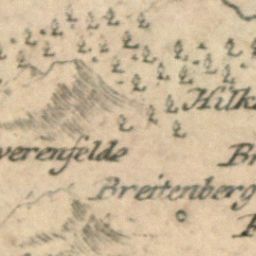 Hilk
verenfelde
Br
Breitenberg